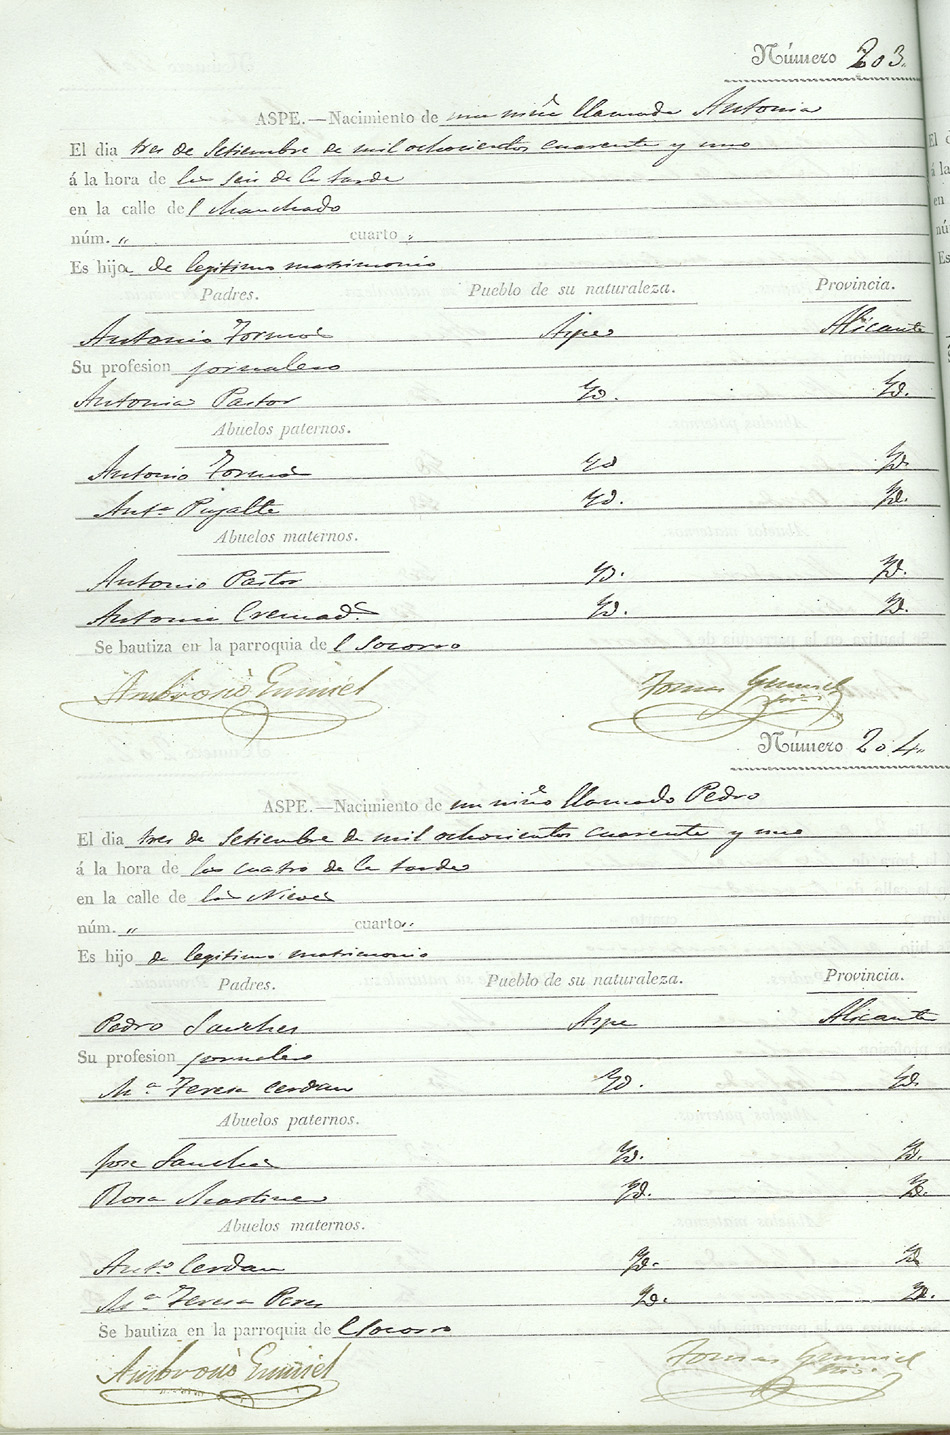 Número 203.
ASPE.—Nacimiento de una niña llamada Antonia
El dia tres de Setiembre de mil ochocientos cuarenta y uno
á la hora de las seis de la tarde
en la calle del Manchado
núm. " cuarto "
Es hija de legitimo matrimonio
Padres. Pueblo de su naturaleza. Provincia.
Antonio Aspe Alicante
Su profesion jornalero
Antonia Pastor Yd. Yd.
Abuelos paternos.
Antonio Yd Yd.
Antª Pujalte Yd. Yd.
Abuelos maternos.
Antonio Pastor Yd. Yd.
Antonia Cremads Yd. Yd.
Se bautiza en la parroquia del Socorro
Ambrosio Tomas
Número 204.
ASPE.—Nacimiento de un niño llamado Pedro
El dia tres de Setiembre de mil ochocientos cuarenta y uno
á la hora de las cuatro de la tarde
en la calle de las Nieves
núm. " cuarto "
Es hijo de legitimo matrimonio
Padres. Pueblo de su naturaleza. Provincia.
Pedro Sanches Aspe Alicante
Su profesion jornalero
Mª Teresa Cerdan Yd. Yd.
Abuelos paternos.
Jose Sanches Yd. Yd.
Rosa Martines Yd. Yd.
Abuelos maternos.
Antº Cerdan Yd. Yd.
Mª Teresa Peres Yd. Yd.
Se bautiza en la parroquia del Socorro
Ambrosio Tomas